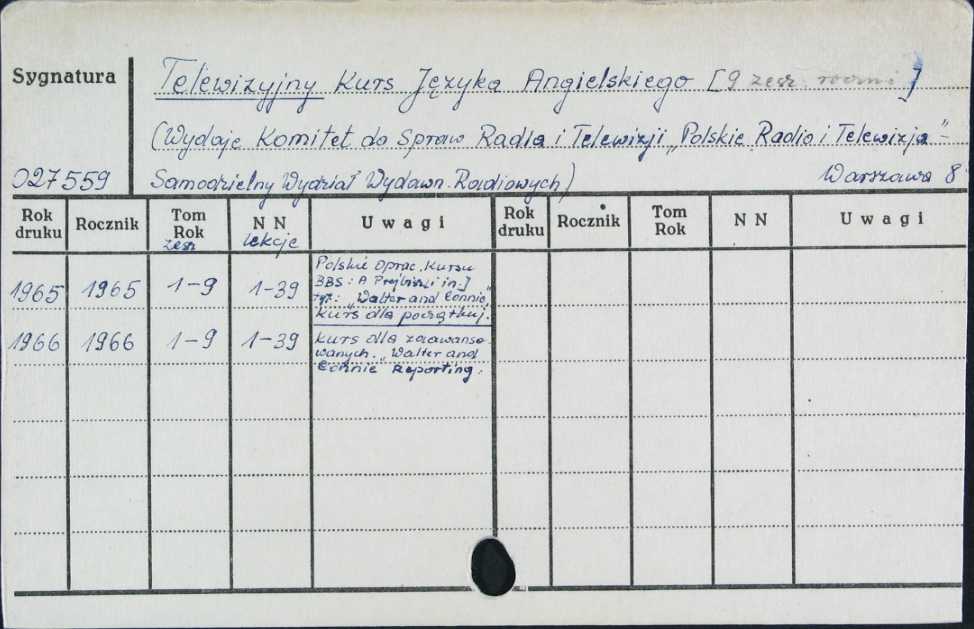 Sygnatura
Telewizyjny Kurs Języka Angielskiego [9 zesz. roczni]
(Wydaje Komitet do Spraw Radia i Telewizji „Polskie Radio i Telewizja" –
027559 Samodzielny Wydział Wydawn. Radiowych) Warszawa 8°
Rok druku Rocznik Tom Rok zesz N N lekcje Uwagi Rok druku Rocznik Tom Rok N N Uwagi
Polskie oprac. kursu
BBS: A in.]
1965 1965 1–9 1–39 „Walter and Connie„
Kurs dla początkuj.
1966 1966 1–9 1–39 Kurs dla zaawanso-
wanych. „Walter and
Connie Reporting.